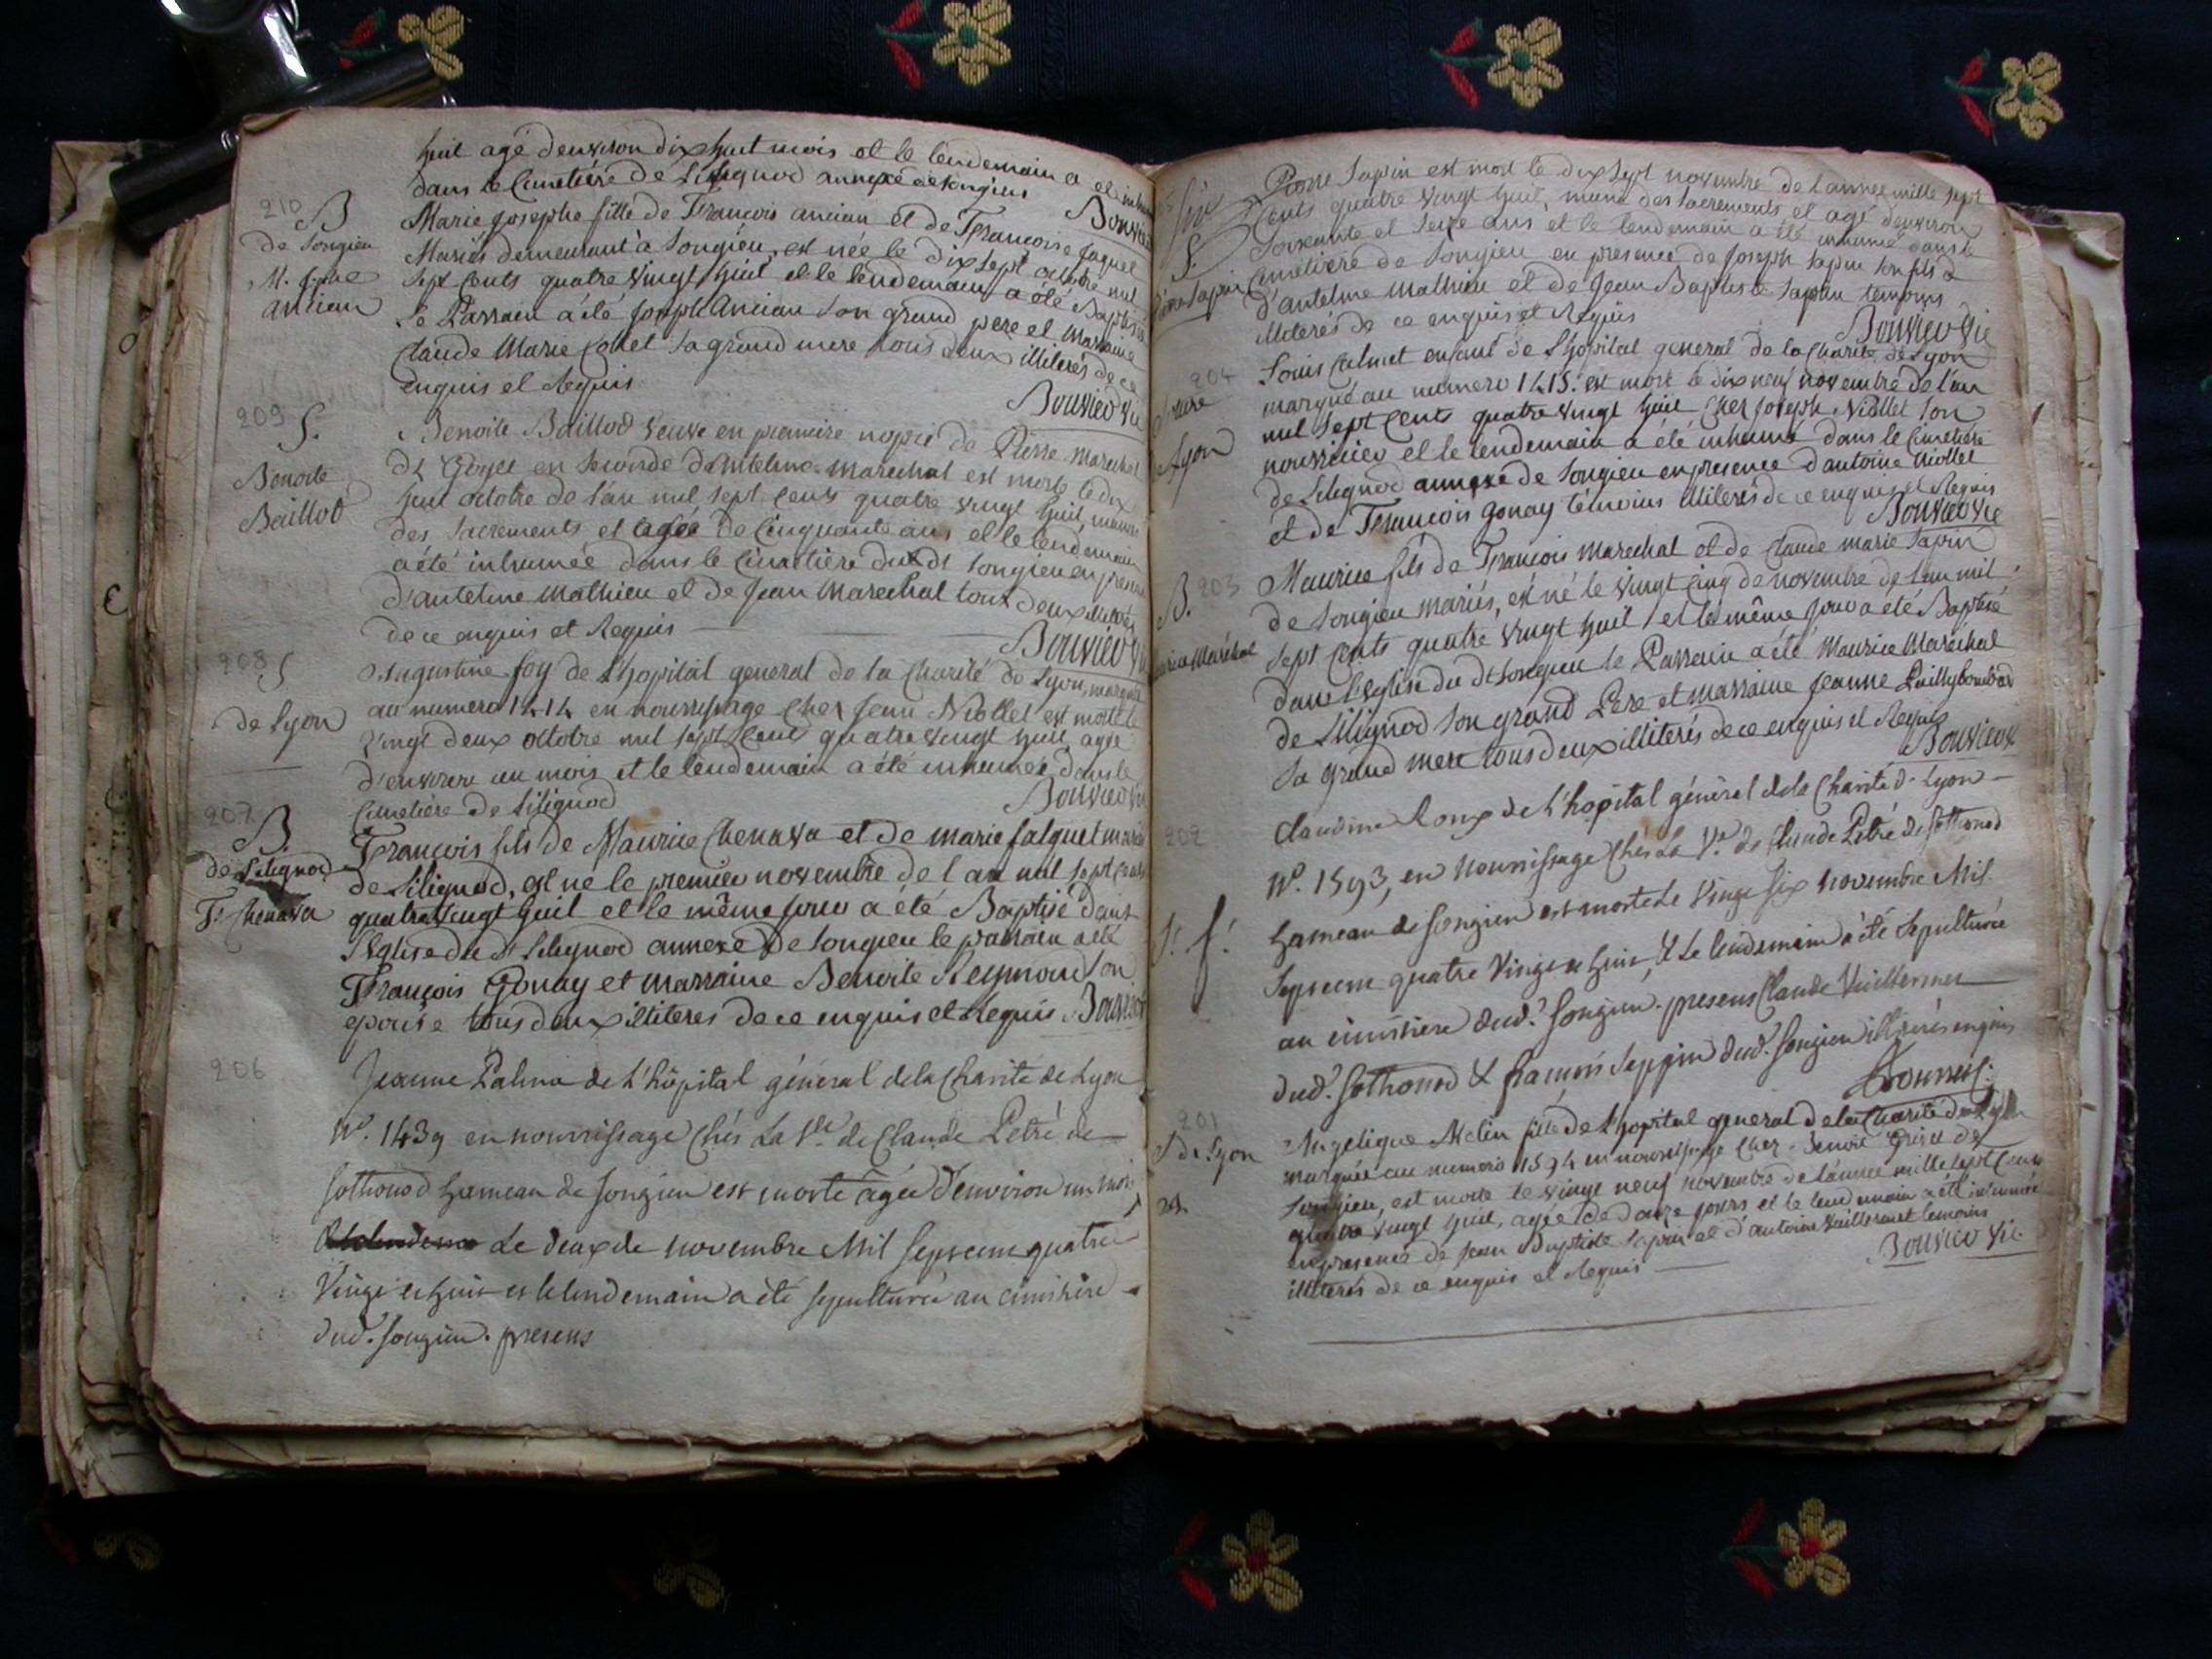 huit agé denviron dix huit mois et le lendemain a eté inhum
dans le Cimetière de Silignod annexe de songieu
Bouvier
210
B
de Songieu
M. Jophe
ancian
Marie josephe fille de François ancian et de Françoise Jaquet
Mariés demeurant à Songieu, est née le dix sept octobre mil
sept cents quatre vingt huit et le lendemain a été Baptisée
le Parrain a été joseph Ancian son grand père et Marraine
Claude Marie Collet sa grand mere tous deux illiterés de ce
enquis et Requis
Bouvier vic
209
S.
Benoite
Baillod
Benoite Baillod veuve en premiere nopce de Pierre Marechal
dt Goyet en seconde d'Antelme Marechal est morte le dix
huit octobre de l'an mil sept cents quatre vingt huit, munie
des sacrements et agée de Cinquante ans et le lendemain
a été inhumée dans le Cimetière dudt songieu en presence
d'antelme Mathieu et de Jean Marechal tout deux illiterés
de ce enquis et Requis
Bouvier vi
208
S
de Lyon
Augustine foy de l'hopital general de la Charité de Lyon, marquée
au numero 1414 en nourrissage Cher Jean Niollet est morte le
vingt deux octobre mil sept cent quatre vingt huit, agée
d'environ un mois et le lendemain a été inhumée dans le
Cimetière de Silignod
Bouvier vi
207
B.
de Silignod
F. Chenava
François fils de Maurice Chenava et de marie falquet mariés
de Silignod, est né le premier novembre de l an mil sept cents
quatre vingt huit et le même jour a été Baptisé dans
l'Eglise du dt Silignod annexe de songieu le parrain a été
François Gonay et marraine Benoite Reymond son
epouse tous deux illiteres de ce enquis et Requis Bouvier
206
Jeanne Palma de L'hôpital général de la Charité de Lyon
No. 1439 en nourrissage Chés La Ve. de Claude Petré de
Sothonod hameau de Songieu est morte âgée d'environ un mois
Le deux de novembre Mil Septcent quatre
Vingt et huit et le lendemain a été sepulturée au cimitière
dud. songieu. presens
S.
Pierre Sapin
Pierre Sapin est mort le dix sept novembre de l'année mille sept
Cents quatre vingt huit, muni des sacrements et agé denviron
soixante et seize ans et le lendemain a été inhumé dans le
Cimetière de Songieu en presence de Joseph Sapin son fils &
d'antelme Mathieu et de Jean Baptiste Sapin temoins
illiterés de ce enquis et Requis
Bouvier Vic
204
Lyon
Louis Calmet enfant de l'hopital general de la Charité de Lyon
marqué au numero 1415. est mort le dix neuf novembre de l'an
mil sept cents quatre vingt huit Cher Joseph Niollet son
nourricier et le lendemain a été inhumé dans le Cimetière
de Silignod annexe de Songieu en presence d'antoine Niollet
et de François Gonay témoins illiterés de ce enquis et Requis
Bouvier Vic
203
B.
Maréchal
Maurice fils de François Marechal et de Claude marie Sapin
de Songieu mariés, est né le vingt cinq de novembre de l'an mil
sept cents quatre vingt huit et le même jour a été Baptisé
dans l'Eglise du dt songieu le Parrain a été Maurice Marechal
de Silignod son grand Pere et marraine Jeanne
sa grand mere tous deux illiterés de ce enquis et Requis
Bouvier
202
S.
Claudine Roux de L'hopital général de la Charité d. Lyon
No. 1593, en nourrissage Chés La Ve. de Claude Petré de Sothonod
hameau de Songieu est morte Le vingt Six Novembre Mil
Septcent quatre Vingt et huit, & Le lendemain a été sepulturée
au cimitière dud. Songieu. presens Claude Vuillermet
dud. Sothonod & francois Seppin dud. Songieu illiterés enquis
201
S. de Lyon
Angelique Melin fille de l'hopital general de la Charité de Lyon
marquée au numero 1594 en nourrissage Cher Benoit de
Songieu, est morte le vingt neuf novembre de l'année mille sept cents
quatre vingt huit, agée de douze jours et le lendemain a été inhumée
en presence de Jean Baptiste Sapin et d'antoine Vuillermet temoins
illiterés de ce enquis et Requis
Bouvier Vic.